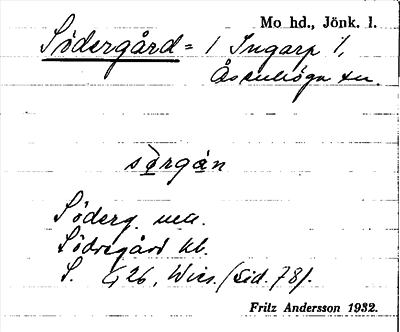 Mo hd., Jönk. l.
Södergård = 1 Ingarp 1,
Åsenhöga sn.
sörgán
Söderg. uea.
Södregård hb.
S. G 26, Wies. (Sid. 78).
Fritz Andersson 1932.